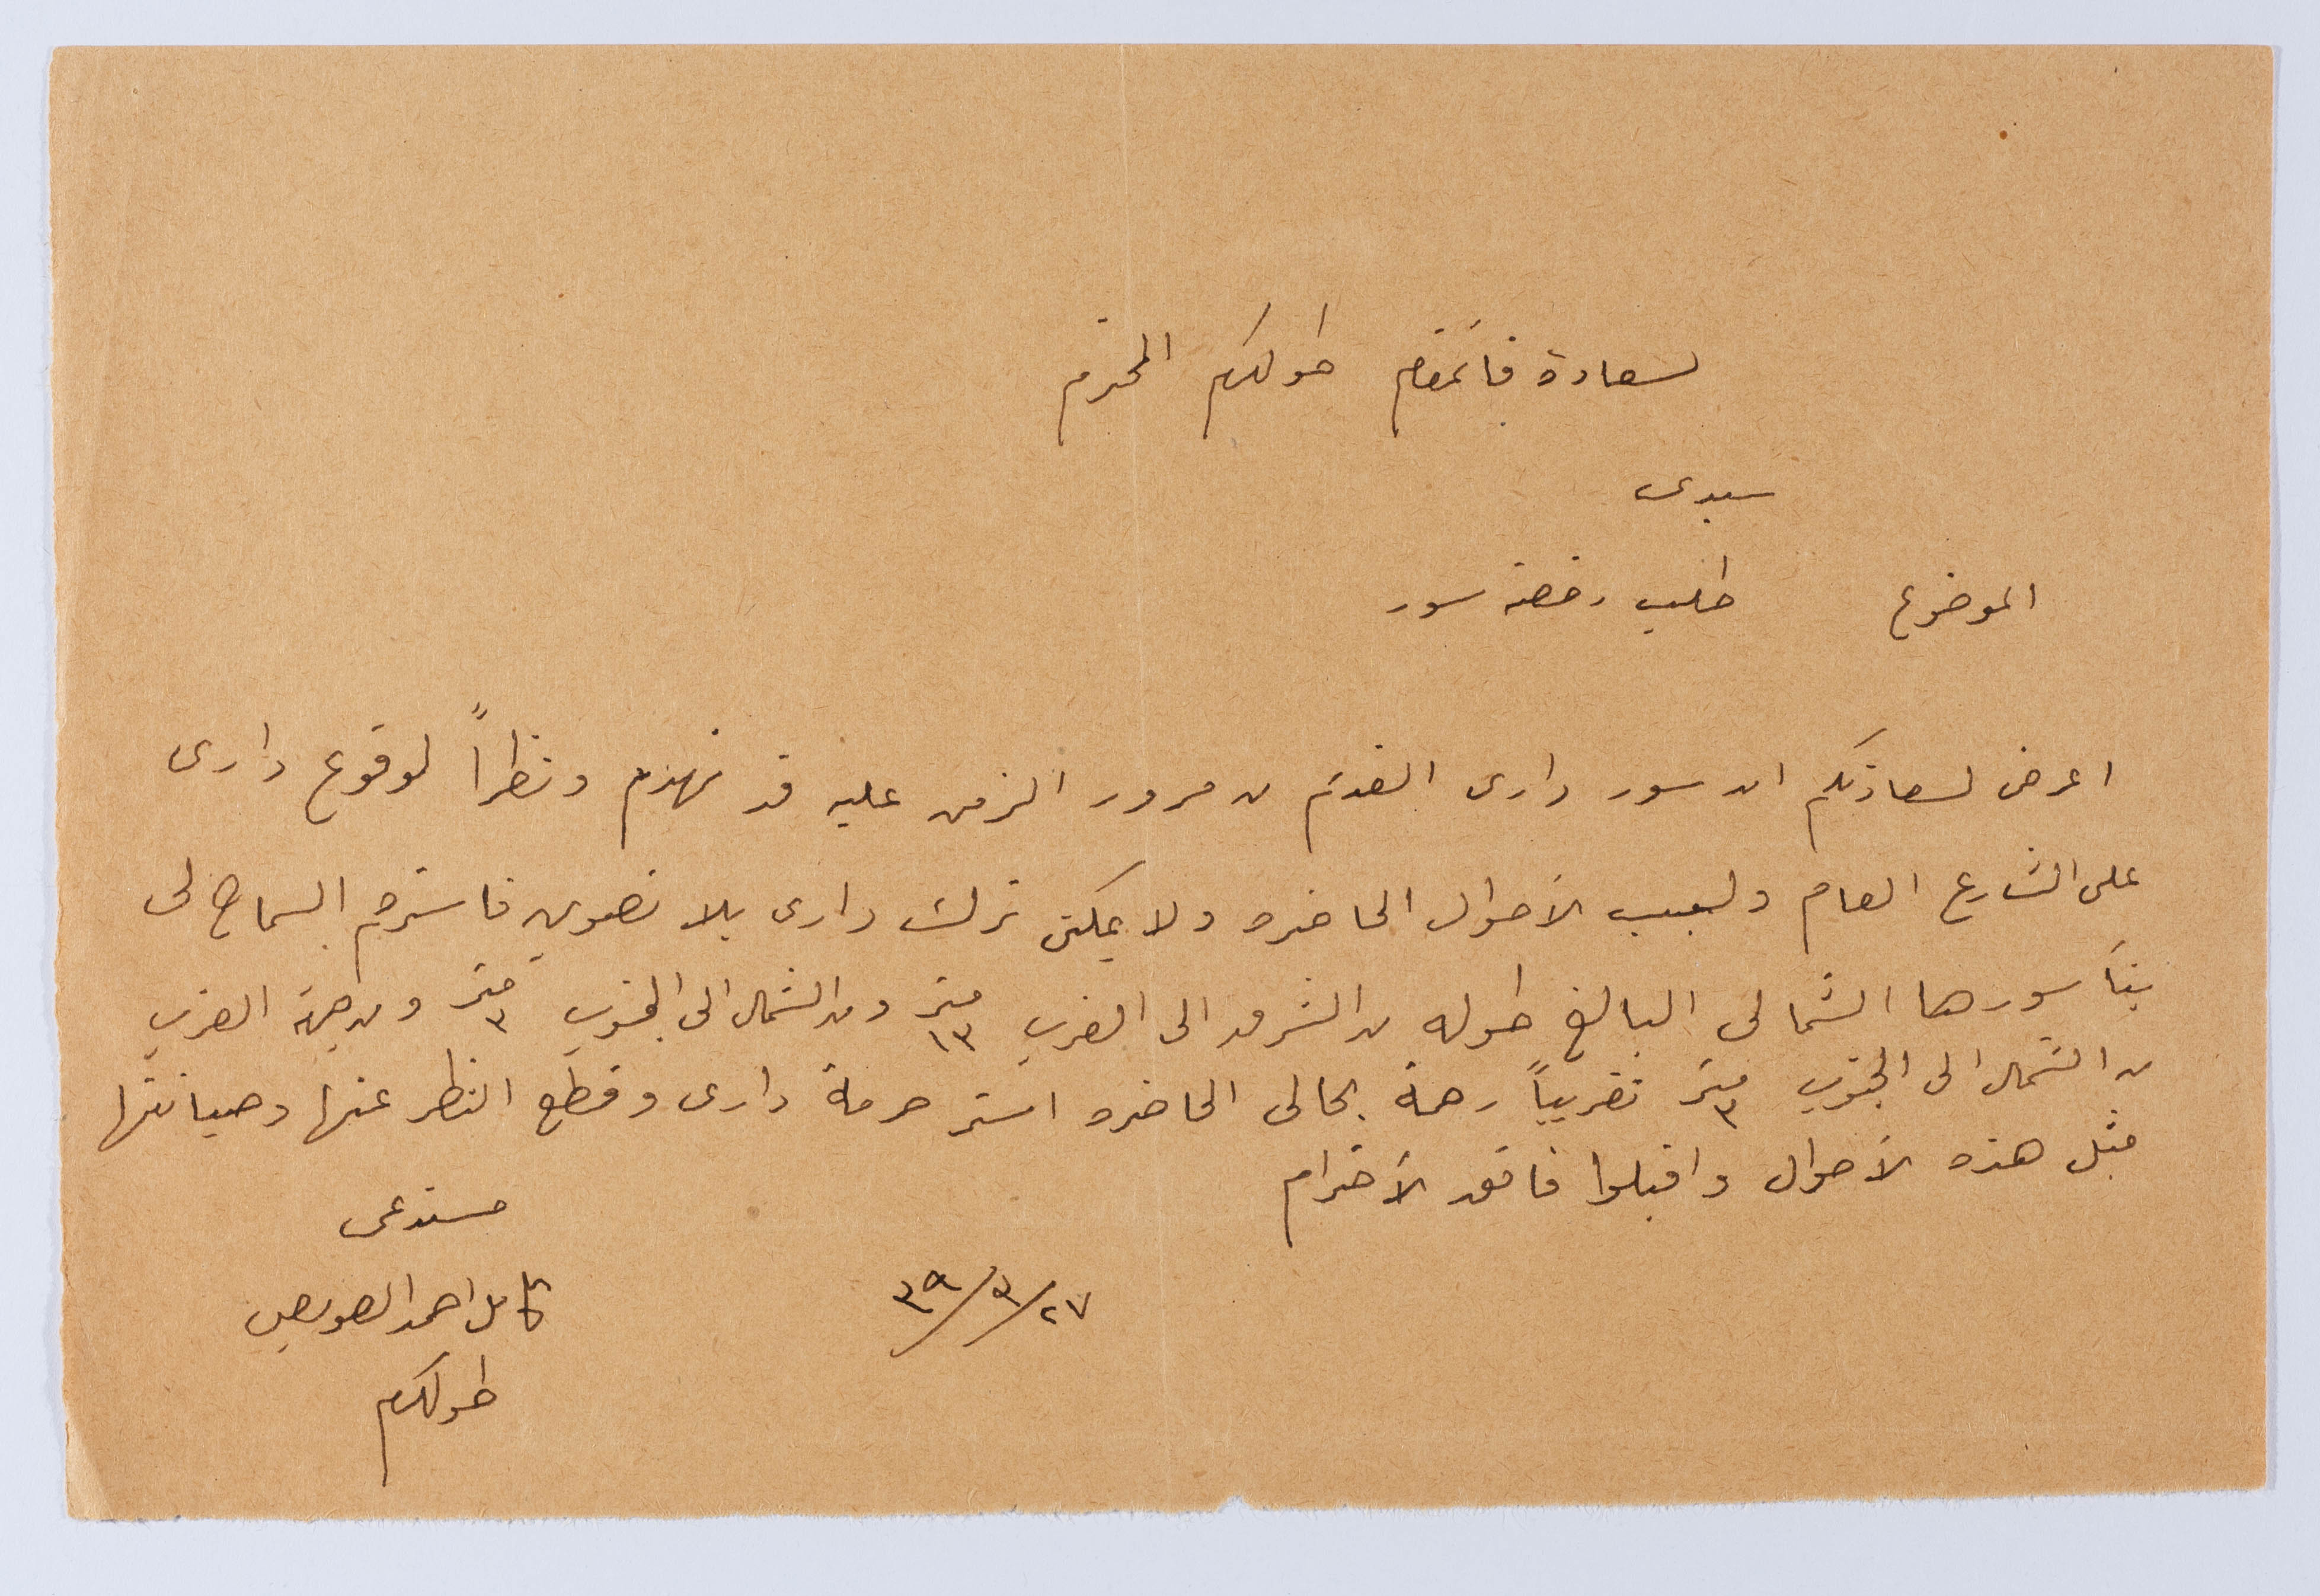 لسعادة قائمقام طولكرم المحترم
سيدى
الموضوع طلب رخصة سور
اعرض لسعادتكم ان سور دارى القديم من مرور الزمن عليه قد تهدم ونظراً لوقوع دارى
على الشارع العام ولسبب الأحوال الحاضره ولا يمكن ترك دارى بلا تصوين فاسترحم السماح لى
بنآ سورها الشمالى البالغ طوله من الشرق الى الغرب ١٣ متر ومن الشمال الى الجنوب ٣ متر ومن جهة الغرب
من الشمال الى الجنوب ٣ متر تقريباً رحمة بحالى الحاضره استر حرمة دارى وقطع النظر عنها وصيانتها
مثل هذه الأحوال واقبلوا فائق الأحترام
مستدعى
٢٧/٣/٣٩
كامل احمد
طولكرم